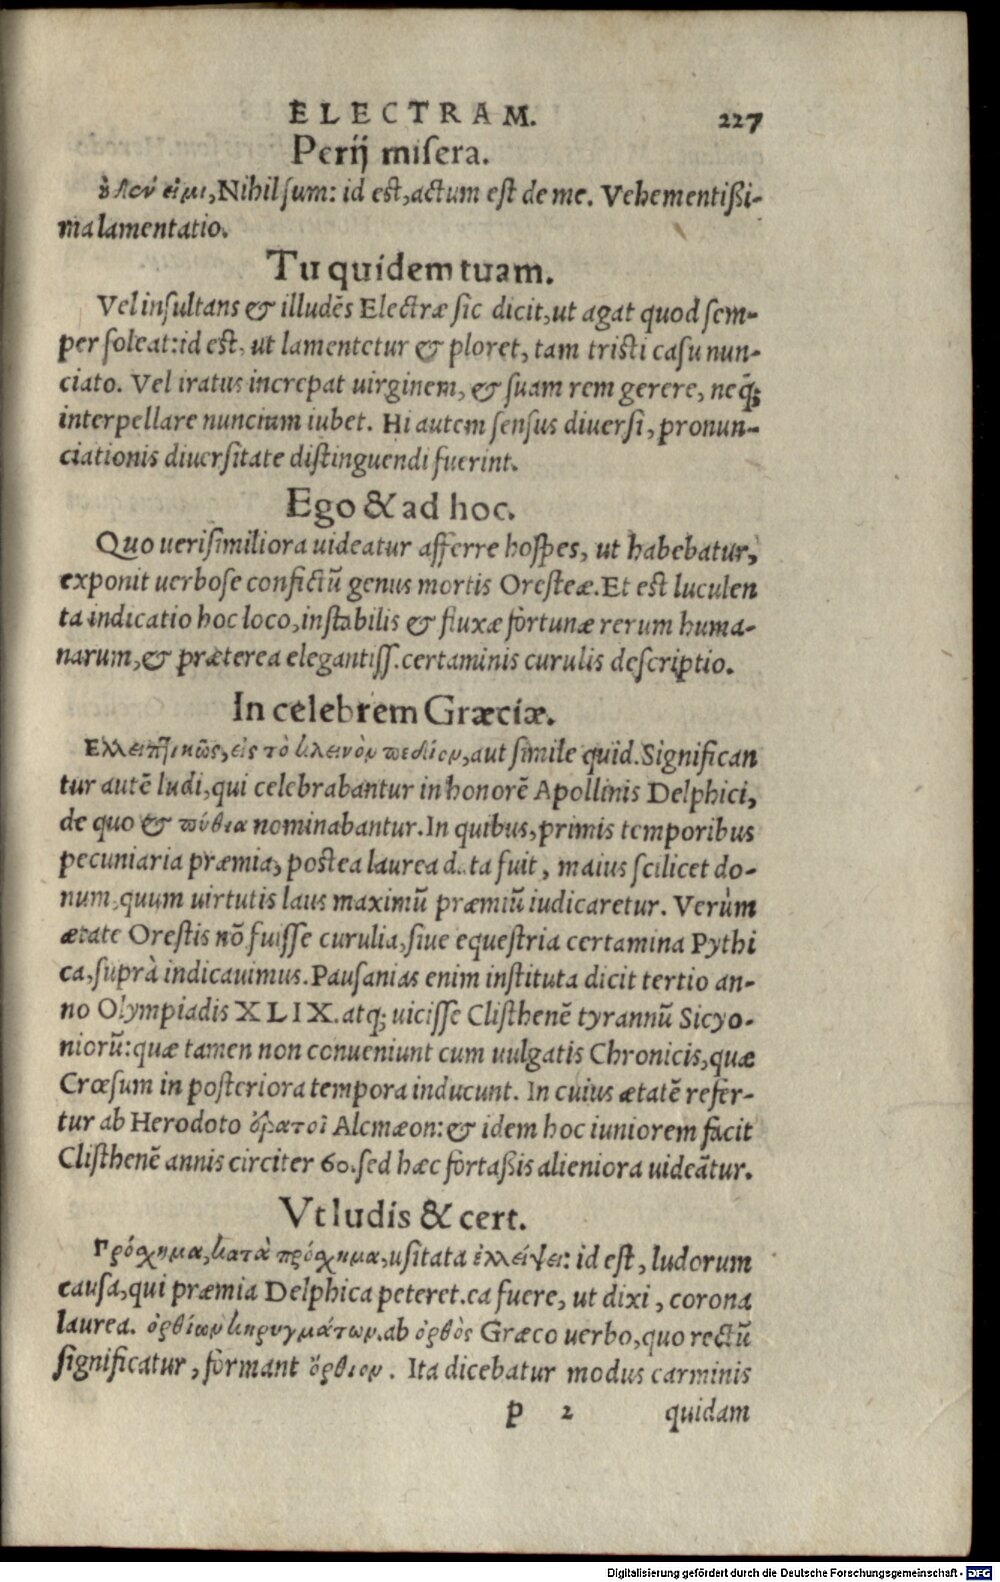 ELECTRAM. 227
Perij misera.
ὐδέν εἰμι, Nihil sum: id est, actum est de me. Vehementißi-
ma lamentatio.
Tu quidem tuam.
Vel insultans & illudẽs Electræ sic dicit, ut agat quod sem-
per soleat: id est, ut lamentetur & ploret, tam tristi casu nun-
ciato. Vel iratus increpat uirginem, & suam rem gerere, neq́;
interpellare nuncium iubet. Hi autem sensus diuersi, pronun-
ciationis diuersitate distinguendi fuerint.
Ego & ad hoc.
Quo uerisimiliora uideatur afferre hospes, ut habebatur,
exponit uerbose confictũ genus mortis Oresteæ. Et est luculen
ta indicatio hoc loco, instabilis & fluxæ fortunæ rerum huma-
narum, & præterea elegantiss. certaminis curulis descriptio.
In celebrem Græciæ.
Ελλειπτικῶς, εἰς τὸ κλεινὸν πεδίον, aut simile quid. Significan
tur autẽ ludi, qui celebrabantur in honorẽ Apollinis Delphici,
de quo & πύθια nominabantur. In quibus, primis temporibus
pecuniaria præmia, postea laurea data fuit, maius scilicet do-
num, quum uirtutis laus maximũ præmiũ iudicaretur. Verùm
ætate Orestis nõ fuisse curulia, siue equestria certamina Pythi
ca, suprà indicauimus. Pausanias enim instituta dicit tertio an-
no Olympiadis XLIX. atq; uicisse Clisthenẽ tyrannũ Sicyo-
niorũ: quæ tamen non conueniunt cum uulgatis Chronicis, quæ
Crœsum in posteriora tempora inducunt. In cuius ætatẽ refer-
tur ab Herodoto ὁρατοὶ Alcmæon: & idem hoc iuniorem facit
Clisthenẽ annis circiter 60. sed hæc fortaßis alieniora uideãtur.
Vt ludis & cert.
Πρόσχημα, κατὰ πρόσχημα, usitata ἐλλείψει: id est, ludorum
causa, qui præmia Delphica peteret. ea fuere, ut dixi, corona
laurea. ὀρθίων κηρυγμάτων. ab ὀρθὸς Græco uerbo, quo rectũ
significatur, formant ὄρθιον. Ita dicebatur modus carminis
p 2 quidam
Digitalisierung gefördert durch die Deutsche Forschungsgemeinschaft - DFG